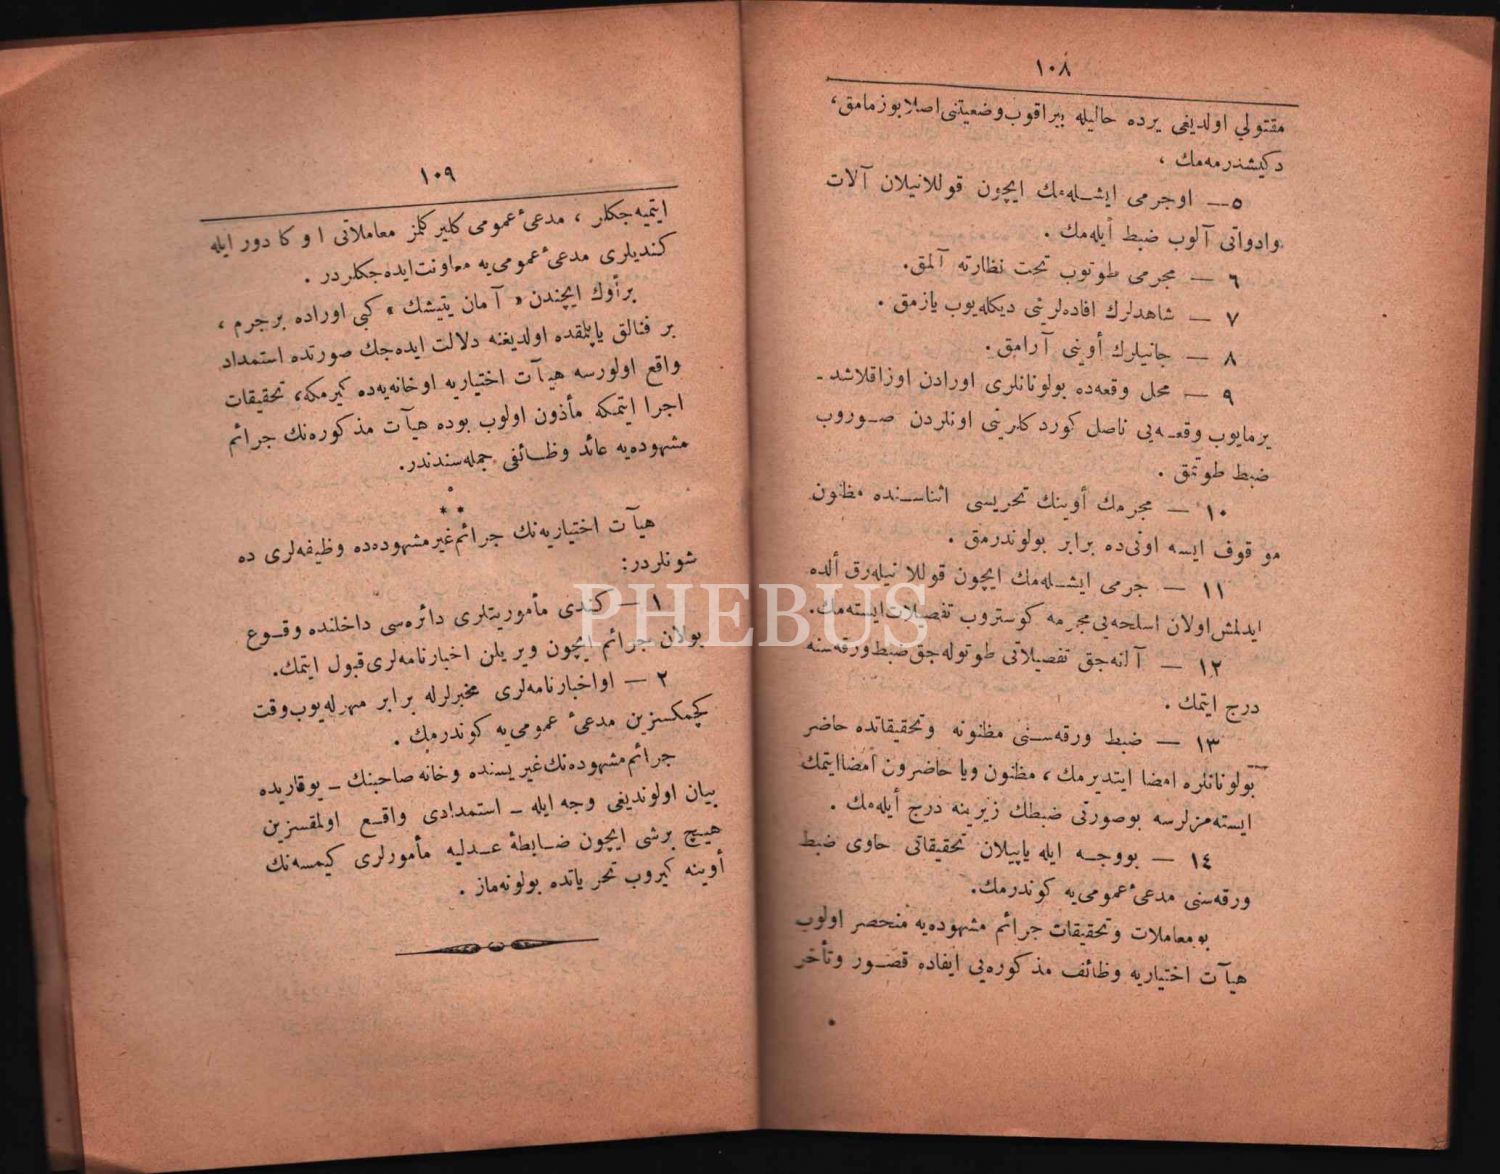 ١٠٨
مقتولی اولدیغی یرده حالیله بیراقوب وضعیتنی اصلا بوزمامق،
دكیشدرمه‌مك ،
٥— اوجرمی ایشله‌مك ایچون قوللانیلان آلات
وادواتی آلوب ضبط أیله‌مك .
٦ — مجرمی طوتوب تحت نظارته آلمق.
٧ — شاهدلرك افاده‌لرینی دیكله‌یوب یازمق .
٨ — جانیلرك أوینی آرامق.
٩ — محل وقعه‌ده بولونانلری اورادن اوزاقلاشد ـ
یرمایوب وقعه‌یی ناصل كوردكلرینی اونلردن صوروب
ضبط طوتمق .
١٠ — مجرمك أوینك تحریسی اثناسنده مظنون
موقوف ایسه اونی‌ده برابر بولوندرمق .
١١ — جرمی ایشله‌مك ایچون قوللانیله‌رق ألده
ایدلمش اولان اسلحه‌یی مجرمه كوستروب تفصیلات ایسته‌مك.
١٢ — آلنه‌جق تفصیلاتی طوتوله‌جق ضبط ورقه‌سنه
درج ایتمك .
١٣ — ضبط ورقه‌سنی مظنونه وتحقیقاتده حاضر
بولونانلره امضا ایتدیرمك، مظنون ویا حاضرون امضا ایتمك
ایسته‌مزلرسه بوصورتی ضبطك زیرینه درج أیله‌مك .
١٤ — بووجه ایله یاپیلان تحقیقاتی حاوی ضبط
ورقه‌سنی مدعیٔ عمومی‌یه كوندرمك.
بو معاملات وتحقیقات جرائم مشهوده‌یه منحصر اولوب
هیأت اختیاریه وظائف مذكوره‌یی ایفاده قصور وتأخر
١٠٩
ایتمیه‌جكلر ، مدعیٔ عمومی كلیر كلمز معاملاتی اوكا دور ایله
كندیلری مدعیٔ عمومی‌یه معاونت ایده‌جكلردر .
برأوك ایچندن « آمان یتیشك » كبی اوراده برجرم ،
بر فنالق یاپلمقده اولدیغنه دلالت ایده‌جك صورتده استمداد
واقع اولورسه هیأت اختیاریه اوخانه‌یه‌ده كیرمكه، تحقیقات
اجرا ایتمكه مأذون اولوب بوده هیأت مذكوره‌نك جرائم
مشهوده‌یه عائد وظائفی جمله‌سندندر.
* * *
هیأت اختیاریه‌نك جرائم غیر مشهوده‌ده وظیفه‌لری ده
شونلردر:
١ — كندی مأموریتلری دائره‌سی داخلنده وقوع
بولان جرائم ایچون ویریلن اخبارنامه‌لری قبول ایتمك.
٢ — اواخبارنامه‌لری مخبرلرله برابر مهرله‌یوب وقت
كچمكسزین مدعیٔ عمومی‌یه كوندرمك .
جرائم مشهوده‌نك غیریسنده وخانه صاحبنك ـ یوقاریده
بیان اولوندیغی وجه ایله ـ استمدادی واقع اولمقسزین
هیچ برشی ایچون ضابطهٔ عدلیه مأمورلری كیمسه‌نك
أوینه كیروب تحریاتده بولونه‌ماز .
PHEBUS